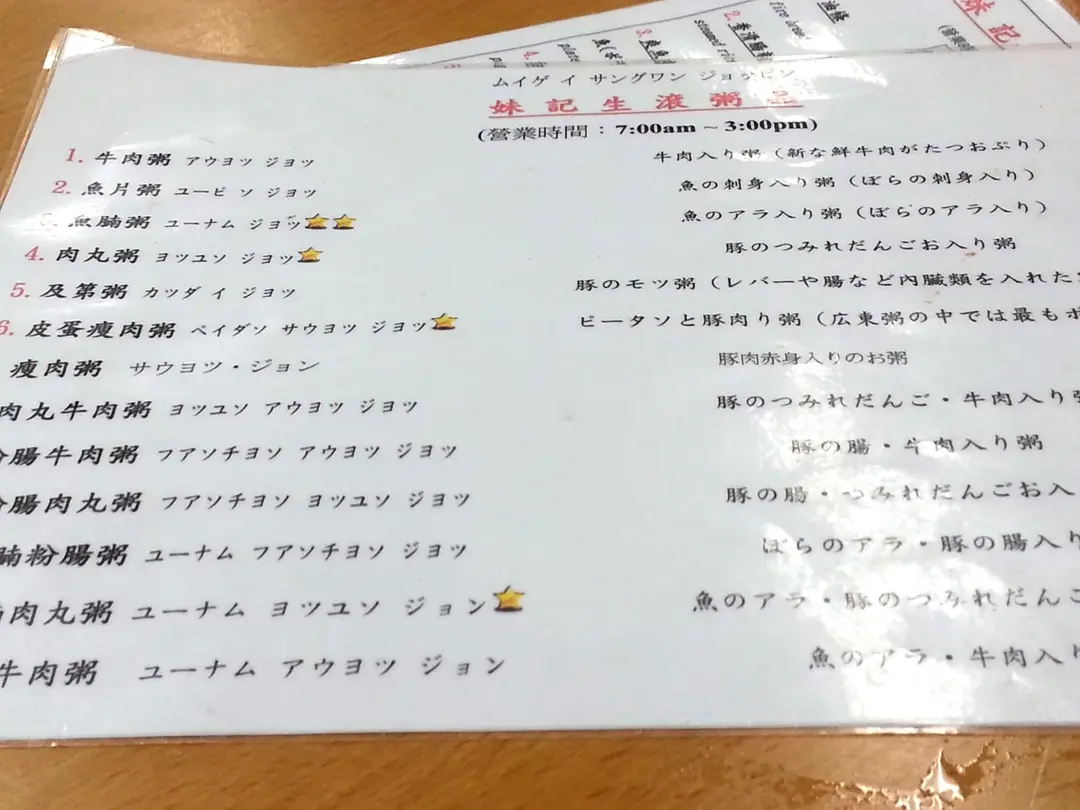 ムイゲイ サングワン ジョッピン
妹記生滾粥品
(營業時間：7:00am ~ 3:00pm)
1. 牛肉粥 アウヨツ ジョツ 牛肉入り粥（新な鮮牛肉がたつおぷり）
2. 魚片粥 ユーピ ソ ジョツ 魚の刺身入り粥（ぼらの刺身入り）
魚腩粥 ユーナム ジョツ 魚のアラ入り粥（ぼらのアラ入り）
4. 肉丸粥 ヨツユソ ジョツ 豚のつみれだんごお入り粥
5. 及第粥 カツダ イ ジョツ 豚のモツ粥（レバーや腸など内臓類を入れた
6. 皮蛋瘦肉粥 ペイダソ サウヨツ ジョツ ピータソと豚肉り粥（広東粥の中では最も
瘦肉粥 サウヨツ・ジョン 豚肉赤身入りのお粥
肉丸牛肉粥 ヨツユソ アウヨツ ジョツ 豚のつみれだんご・牛肉入り
腸牛肉粥 フアソチヨソ アウヨツ ジョツ 豚の腸・牛肉入り粥
腸肉丸粥 フアソチヨソ ヨツユソ ジョツ 豚の腸・つみれだんごお入
腩粉腸粥 ユーナム フアソチヨソ ジョツ ぼらのアラ・豚の腸入り
肉丸粥 ユーナム ヨツユソ ジョン 魚のアラ・豚のつみれだんご
牛肉粥 ユーナム アウヨツ ジョン 魚のアラ・牛肉入り
妹記
油條
2.
3.
4.